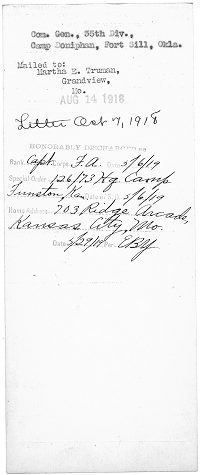 Com. Gen., 35th Div.,
Camp Doniphan, Fort Sill, Okla.
Mailed to:
Martha E. Truman,
Grandview,
Mo.
AUG 14 1918
Letter Oct 7, 1918
HONORABLY DISCHARGED
Rank Capt Corps F.A. 5/6/19
Special Order 126/73 Hq Camp
Funston, Kan. Date 5/6/19
Home Address 703 Ridge Arcade,
Kansas City, Mo.
Date 5/29/19 Per EBY